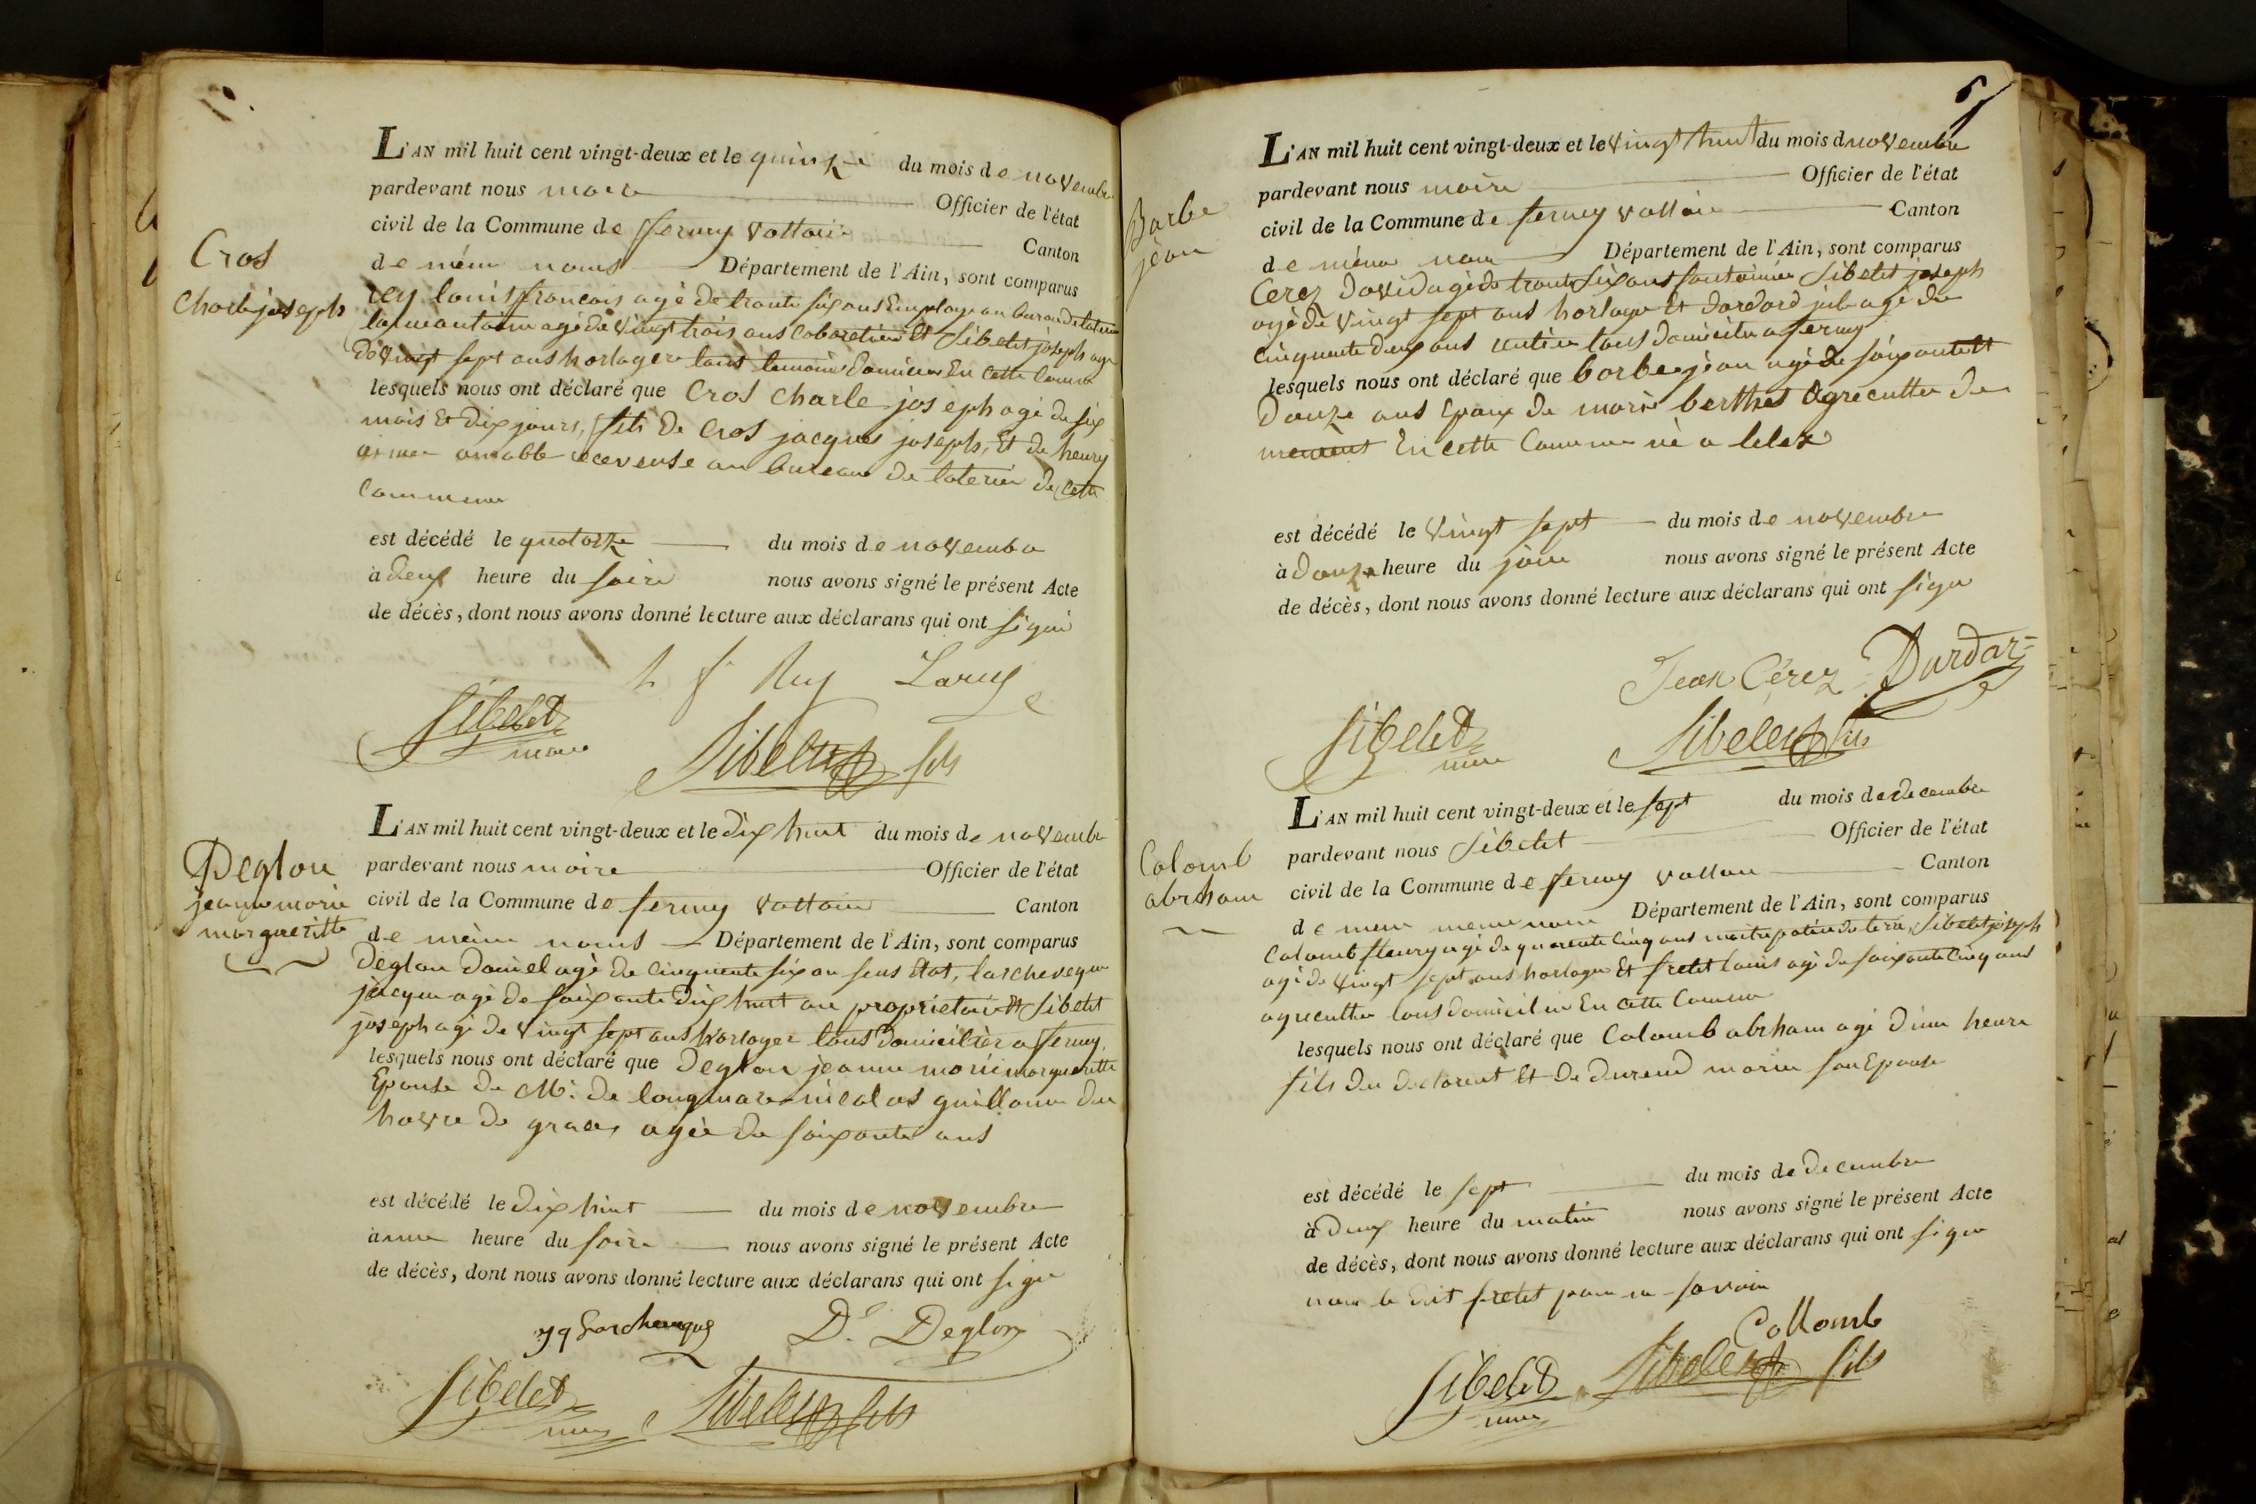 Cros
Charle joseph
L'AN mil huit cent vingt-deux et le quinze du mois de novembre
pardevant nous maire Officier de l'état
civil de la Commune de fferney Voltaire Canton
de même noms Département de l'Ain, sont comparus
rey louis francois agé de trante six ans Employe au bureau de loterie
agé de Vingt trois ans cabaretier Et Sibelet joseph age
de Vingt sept ans horlager tous temoins Domicies En cette Comune
lesquels nous ont déclaré que Cros Charle joseph agé de six
mois Et dix jours, fils De Cros jacques joseph, Et de henry
aimée amable receveuse au bureau De loterie de Cette
Commune
est décédé le quatorze du mois de novembre
à deux heure du soire nous avons signé le présent Acte
de décès, dont nous avons donné lecture aux déclarans qui ont signé
L f Rey Larcy
Sibelet
maire
Sibelet fils
Deglon
jeanne marie
margueritte
L'AN mil huit cent vingt-deux et le dix huit du mois de novembre
pardevant nous maire Officier de l'état
civil de la Commune de ferney Voltaire Canton
de même noms Département de l'Ain, sont comparus
Deglon Daniel agé de cinquante six an sens Etat, larcheveque
jacque agé de soixante dix huit an propriétaire Et Sibelet
joseph agé de Vingt sept ans horloger tous Domiciliér a ferney,
lesquels nous ont déclaré que Deglon jeanne marie margueritte
Epouse de Mr. de longmare nicolas guillaume du
havre de grace, agée de soixante ans
est décédé le dix huit du mois de novembre
à une heure du soire nous avons signé le présent Acte
de décès, dont nous avons donné lecture aux déclarans qui ont signe
Jq Larcheveque D.l Deglon
Sibelet
maire
Sibelet fils
Barbe
jean
L'AN mil huit cent vingt-deux et le Vingt huit du mois d novembre
pardevant nous maire Officier de l'état
civil de la Commune de ferney Voltaire Canton
de même nom Département de l'Ain, sont comparus
Cerez David agé de trante six ans fontainier Sibelet joseph
agé de Vingt sept ans horlager Et dardard agé de
cinquante deux ans rentier tous domicilie a ferney
lesquels nous ont déclaré que barbe jean agé de soixante Et
Douze ans Epoux de marie berthet Agreculteur De
meurent En cette Commune né a lelex
est décédé le Vingt sept du mois de novembre
à Douze heure du jour nous avons signé le présent Acte
de décès, dont nous avons donné lecture aux déclarans qui ont signe
Jean Cerez Dardar
Sibelet
maire
Sibelet fils
Colomb
abrham
L'AN mil huit cent vingt-deux et le sept du mois de decembre
pardevant nous Sibelet Officier de l'état
civil de la Commune de ferney Voltaire Canton
de meme meme nom Département de l'Ain, sont comparus
Colomb fleury agé de quarente Cinq ans maitre potier de terre, Sibelet joseph
agé de Vingt sept ans horloger Et fretet louis agé de soixante cinq ans
agreculteur tous domicilie En cette Commune
lesquels nous ont déclaré que Colomb abrham agé d'une heure
fils du declarent Et De durend marie son Epouse
est décédé le sept du mois de decembre
à deux heure du matin nous avons signé le présent Acte
de décès, dont nous avons donné lecture aux déclarans qui ont signe
non le dit fretet pour ne savoir
Collomb
Sibelet
maire
Sibelet fils